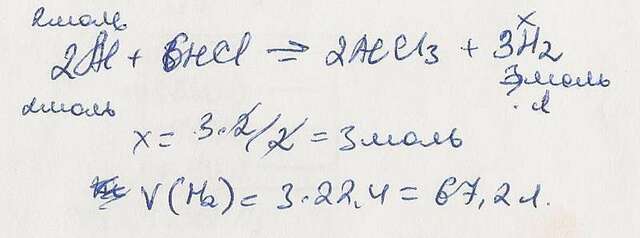 2моль x
2Al + 6HCl = 2AlCl3 + 3H2
2моль 3моль
x = 3·2/2 = 3 моль
V(H2) = 3·22,4 = 67,2 л.